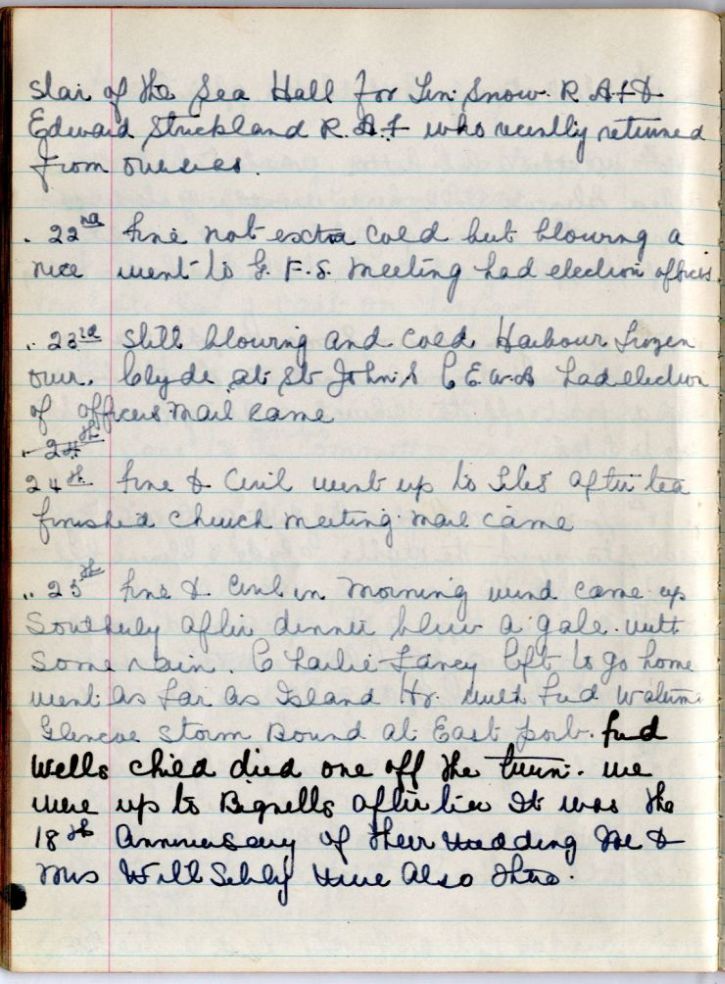 Star of the Sea Hall for Lin: Snow. R A F &
Edward Strickland R. A. F who recently returned
from overseas.
.. 22nd fine not extra cold but blowing a
nice went to G. F. S. Meeting had election officers.
.. 23rd still blowing and cold Harbour frozen
over. Clyde at St John's C. E. W. A had election
of officers mail came
.. 24th
24th fine & Civil went up to after tea
finished church meeting. mail came
.. 25th fine & Civil in morning wind came up
Southerly after dinner blew a gale. with
some rain. Charlie left to go home
went as far as Island Hr. with fred
Glencoe Storm Bound at East port. fred
Wells child died one off the twin. we
were up to Bignells after tea It was the
18th Anniversary of their Wedding Mr &
Mrs Will were also there.